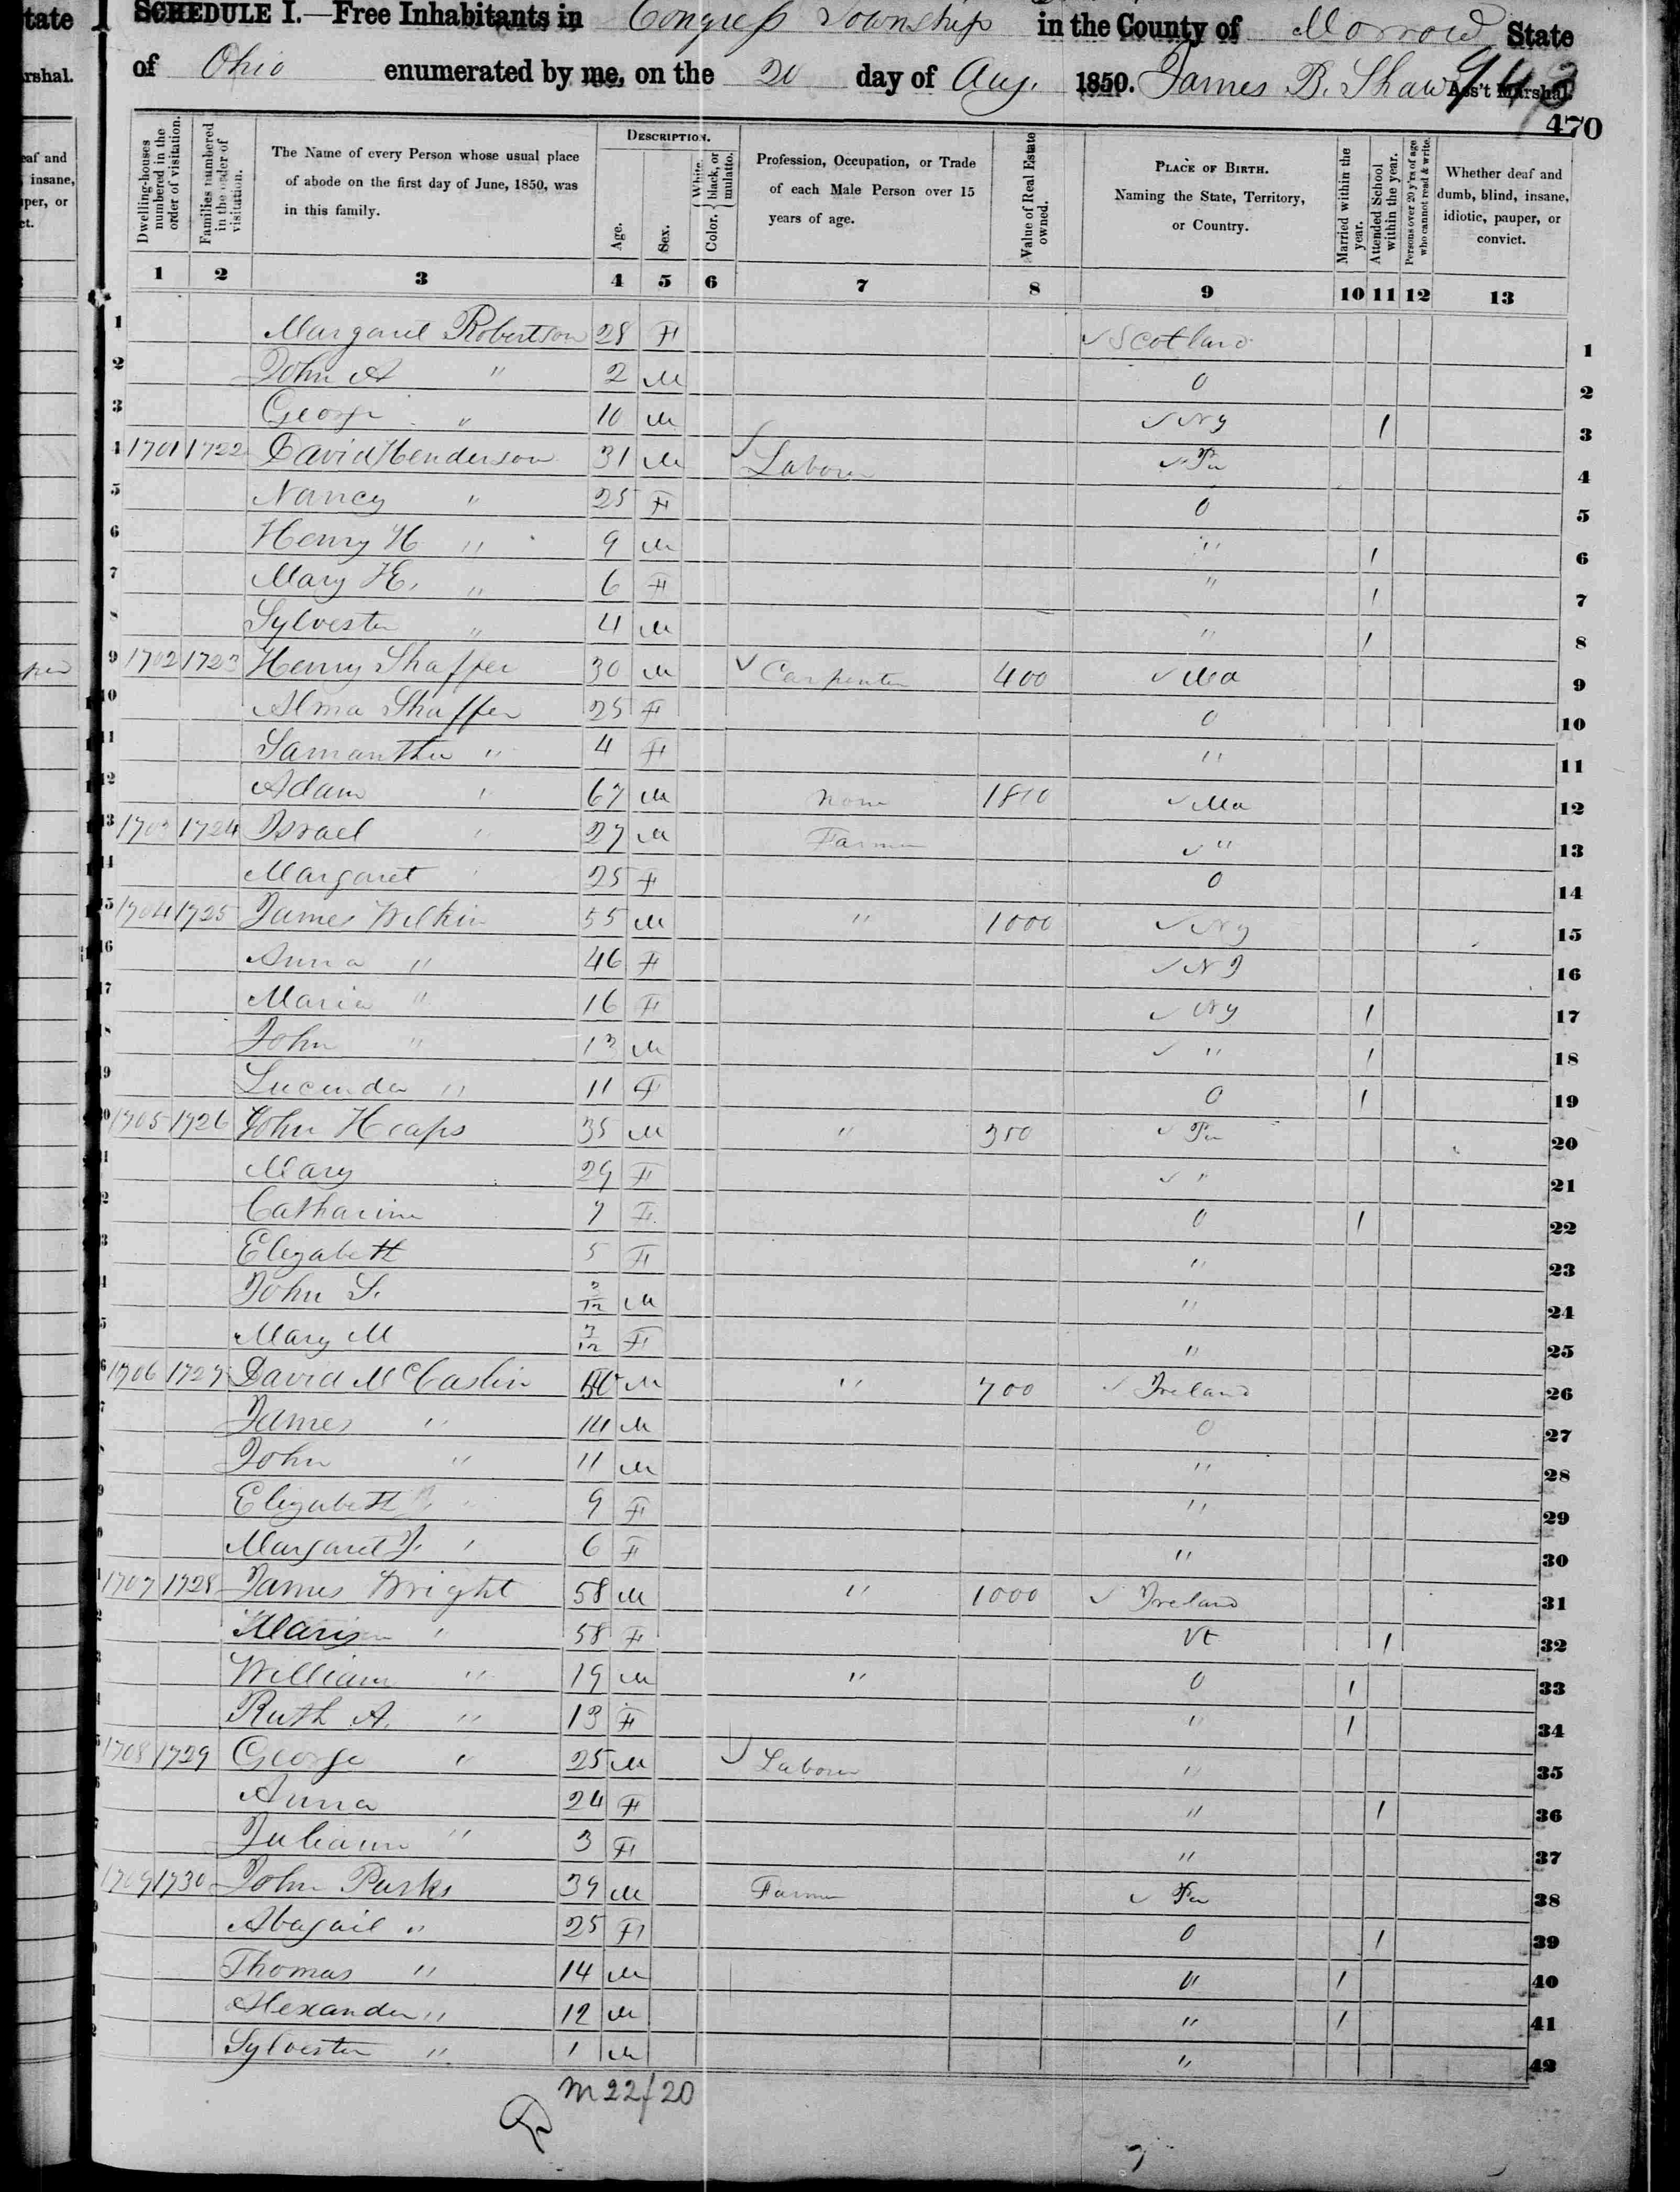 SCHEDULE I.—Free Inhabitants in Congress Township in the County of Morrow State
of Ohio enumerated by me, on the 20 day of Aug. 1850. James B. Shaw Ass't Marshal.
470
Dwelling-houses numbered in the order of visitation. Families numbered in the order of visitation. The Name of every Person whose usual place of abode on the first day of June, 1850, was in this family. DESCRIPTION. Age. Sex. Color. White, black, or mulatto. Profession, Occupation, or Trade of each Male Person over 15 years of age. Value of Real Estate owned. PLACE OF BIRTH. Naming the State, Territory, or Country. Married within the year. Attended School within the year. Persons over 20 y'rs of age who cannot read & write. Whether deaf and dumb, blind, insane, idiotic, pauper, or convict.
1 2 3 4 5 6 7 8 9 10 11 12 13
1 Margaret Robertson 28 F Scotland 1
2 John A " 2 M O 2
3 George " 10 M NY 1 3
4 1701 1722 David Henderson 31 M Laborer Pa 4
5 Nancy " 25 F O 5
6 Henry H " 9 M " 1 6
7 Mary E. " 6 F " 1 7
8 Sylvester " 4 M " 1 8
9 1702 1723 Henry Shaffer 30 M Carpenter 400 Md 9
10 Alma Shaffer 25 F O 10
11 Samantha " 4 F " 11
12 Adam " 67 M None 1800 Md 12
13 1703 1724 Israel " 27 M Farmer " 13
14 Margaret " 25 F O 14
15 1704 1725 James Wilkin 55 M " 1000 NY 15
16 Anna " 46 F NJ 16
17 Maria " 16 F NY 1 17
18 John " 13 M " 1 18
19 Lucinda " 11 F O 1 19
20 1705 1726 John Heaps 35 M " 350 Pa 20
21 Mary 29 F " 21
22 Catharine 7 F O 1 22
23 Elizabeth 5 F " 23
24 John S. 3/12 M " 24
25 Mary M 3/12 F " 25
26 1706 1727 David McCaslin M " 700 Ireland 26
27 James " 14 M O 27
28 John " 11 M " 28
29 Elizabeth " 9 F " 29
30 Margaret J. " 6 F " 30
31 1707 1728 James Wright 58 M " 1000 Ireland 31
32 " 58 F Vt 1 32
33 William " 19 M " O 1 33
34 Ruth A. " 13 F " 1 34
35 1708 1729 George " 25 M Laborer " 35
36 Anna 24 F " 1 36
37 Juliann " 3 F " 37
38 1709 1730 John Parks 39 M Farmer Pa 38
39 Abagail " 25 F O 1 39
40 Thomas " 14 M " 1 40
41 Alexander " 12 M " 1 41
42 Sylvester " 1 M " 42
M 22/20